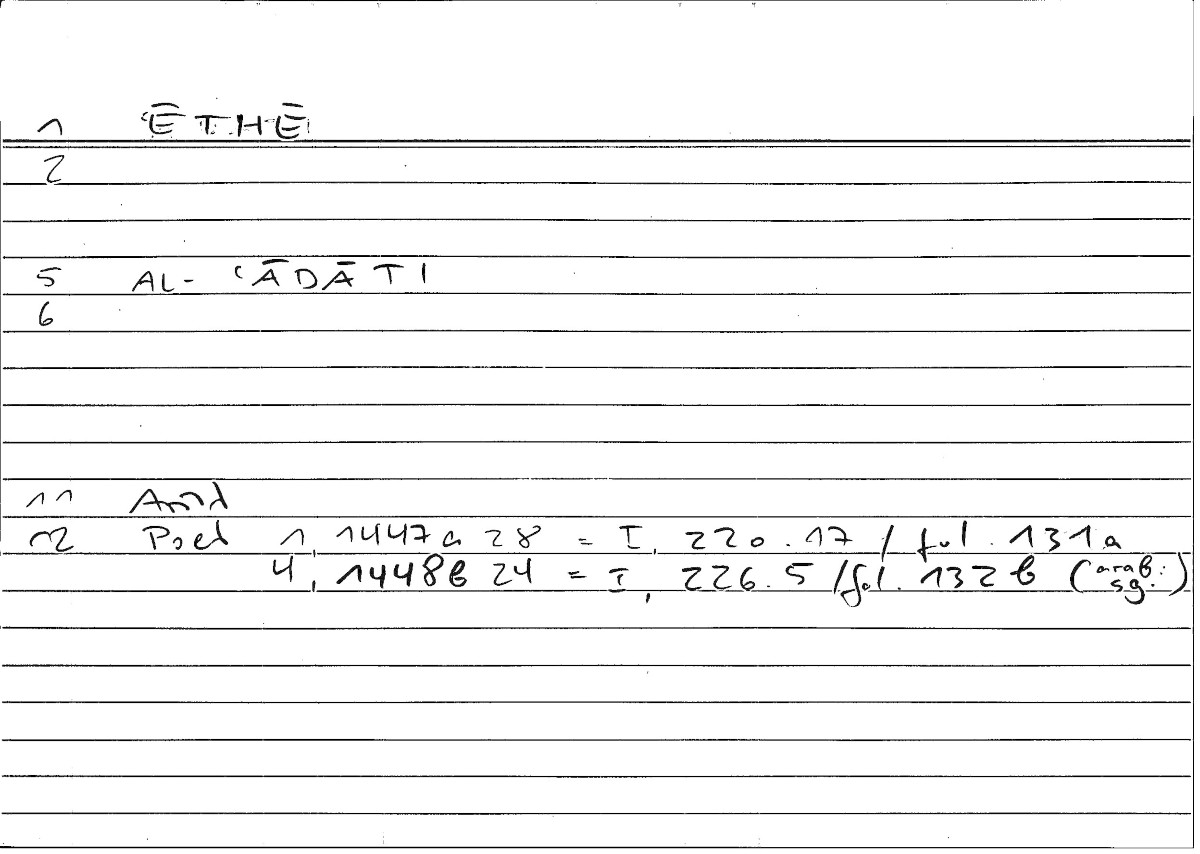 1 ʿĒTHĒ
2
5 AL- ʿĀDĀTI
6
11 Arist
12 Poet 1, 1447a 28 = I, 220.17 / fol. 131a
4, 1448b 24 = I, 226.5 / fol. 132b (arab: sg.)